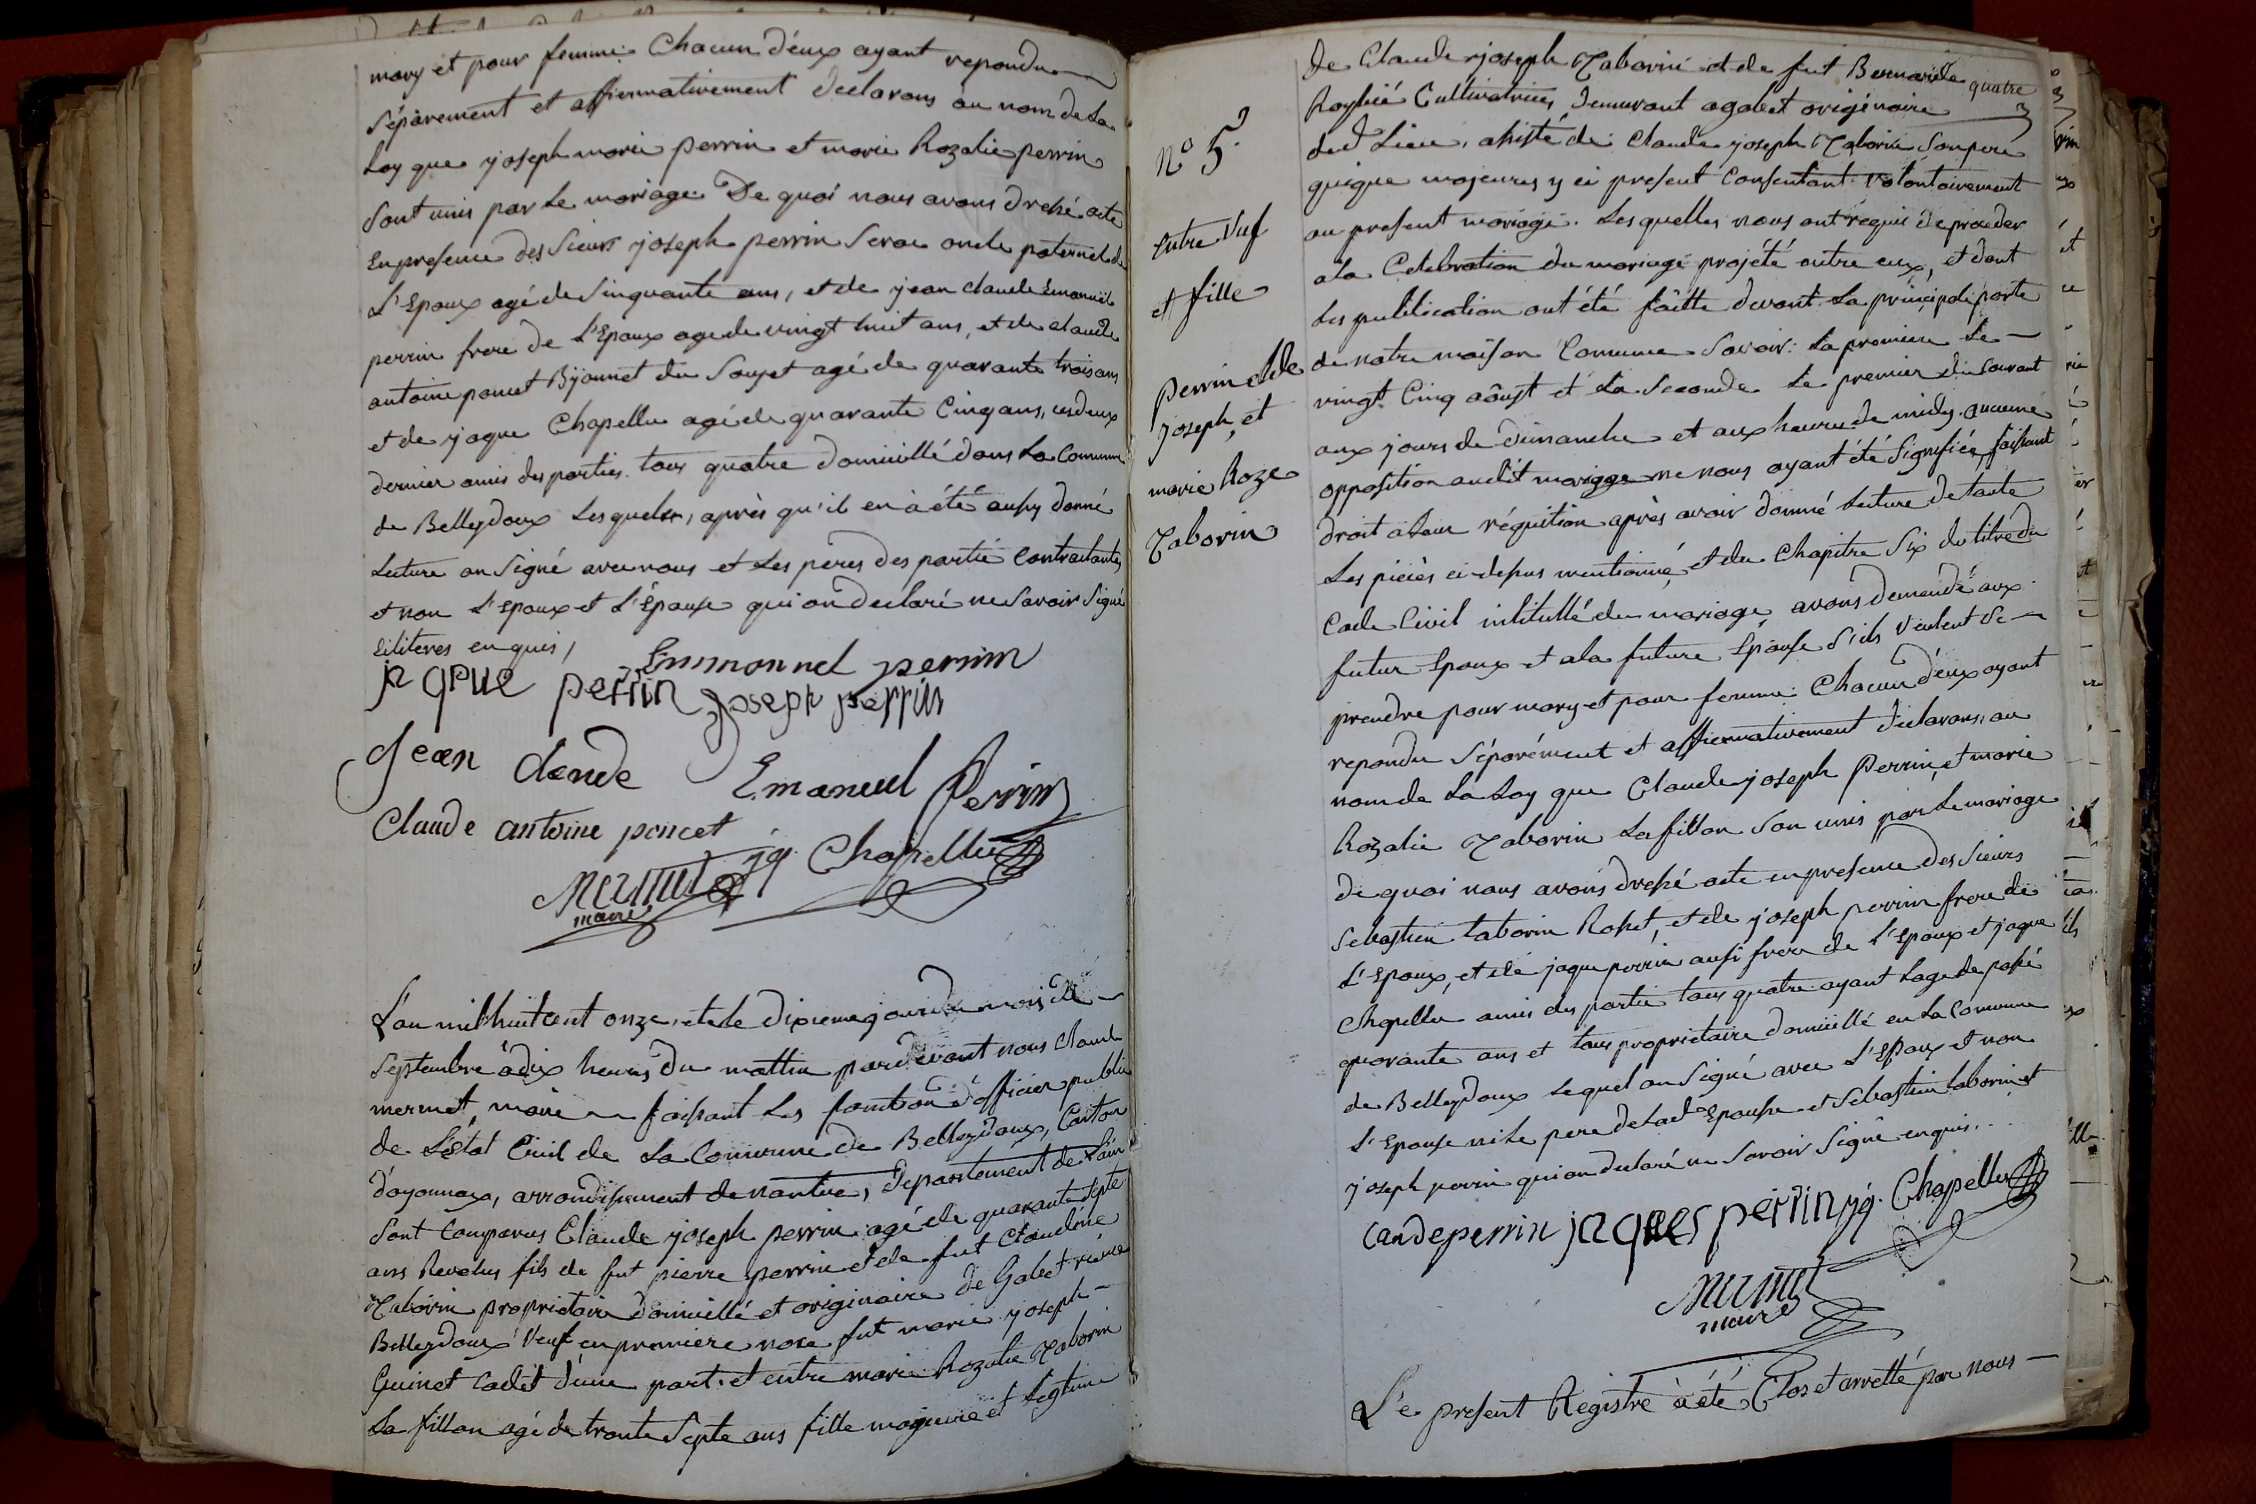 mary et pour femme Chacun d'eux ayant repondu
Séparement et affirmativement declarons au nom de La
Loy que joseph marie perrin et marie Rozalie perrin
sont unis par Le mariage De quoi nous avons dressé acte
En presence des Sieurs joseph perrin Serac oncle paternel de
L'Epoux agé de Sinquante ans, et de jean claude Emanuel
perrin frere de L'Epoux age de vingt huit ans, et de claude
antoine poncet Bijounet du Souget agé de quarante trois ans
et de jaque Chapellu agé de quarante Cinq ans, ces deux
dernier amis des parties. tous quatre domicillé dans La Commune
de Belleydoux Lesquels, après qu'il en à été aussy donné
Lecture on Signé avec nous et Les peres des partie Contractantes
et non L'Epoux et L'Epouse qui on declaré ne Savoir Signé
enquis,
Emmonnel perrin
jaqeue perrin joseph perrin
Jean claude Emanuel Perrin
Claude antoine poncet
jq. Chapellu
Mermet
maire
L'an mil huit cent onze, et le dixieme jour du mois de
Septembre à dix heures du mattin par devant nous Claude
mermet, maire faisant Les fonction d'officier public
de L'état Civil de La Commune de Belleydoux, Canton
d'oyonnax, arrondissement de nantua, departement de L'ain
Sont Comparus Claude joseph perrin agé de quarante Septe
ans Revolus fils de fut pierre perrin et de fut Claudine
Taborin proprietaire domicillé et originaire de Gobet riere
Belleydoux Veuf en premiere noce fut marie joseph
Guinet Cadet d'une part. et entre marie Rozalie Taborin
La fillon agé de trente Septe ans fille majeure et Legitime
quatre
N° 5.
entre Vuf
et fille
perrin Cde
joseph, et
marie Roze
Taborin
de Claude joseph Taborin et de fut Bernarde
Cultivatrice, demeurant a gobet originaire
dud Lieu, assisté de Claude joseph Taborin Son pere
quique majeures y ci present Consentant Volontairement
au present mariage. Lesquelles nous ont requis de proceder
a la Celebration du mariage projété entre eux, et dont
Les publication ont été faitte devant La principale porte
de notre maison Comune Savoir: La premiere Le
vingt Cinq août et La Seconde Le premier du Courant
aux jours de dimanche et aux heure de midy. aucune
opposition audit mariage ne nous ayant été Signifiée, faisant
droit a Leur réquition après avoir donné Lecture de toute
Les pieces ci-dessus mentionné, et du Chapitre Six du titre du
Code Civil intitullé du mariage, avons demandé aux
futur Epoux et a la future Epouse S'ils Veulent Se
prendre pour mary et pour femme: Chacun d'eux ayant
repondu Séparément et affirmativement declarons, au
nom de La Loy que Claude joseph Perrin, et marie
Rozalie Taborin La fillon Son unis par Le mariage
de quoi nous avons dressé acte en presence des Sieurs
Sebastien taborin Rosset, et de joseph perrin frere de
L'Epoux, et de jaque perrin aussi frere de L'Epoux et jaque
Chapellu amis des partie tous quatre ayant L'age de passé
quarante ans et tous proprietaire domicillé en La Commune
de Belleydoux Lequel on Signé avec L'Epoux et non
L'Epouse ni Le pere de Lade Epouse et Sebastien taborin et
joseph perrin qui on declaré ne Savoir Signé enquis...
caudeperrin jaques perrin jq. Chapellu
Mermet
maire
Le present Registre à été Clos et arretté par nous